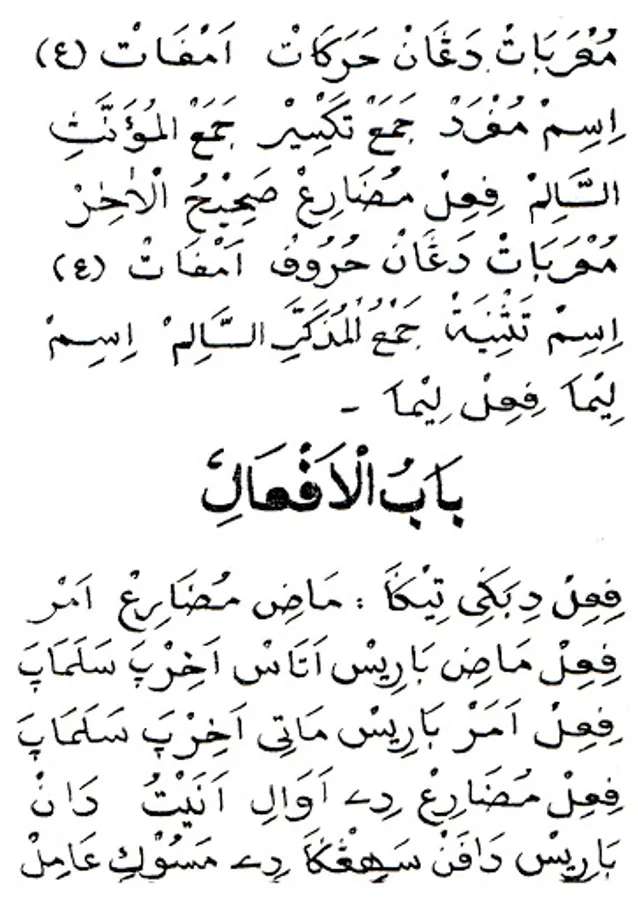 مُعْرَبَاتْ دَڠَانْ حَرَكَاتْ اَمْفَاتْ (٤)
اِسِمْ مُفْرَدْ جَمَعْ تَكْسِيْر جَمَعْ الْمُؤَنَّثِ
السَّالِمْ فِعِلْ مُضَارِعْ صَحِيْحُ الْاٰخِرْ
مُعْرَبَاتْ دَڠَانْ حُرُوفْ اَمْفَاتْ (٤)
اِسِمْ تَثْنِيَةْ جَمْعُ الْمُذَكَّرِ السَّالِمْ اِسِمْ
لِيْمَا فِعِلْ لِيْمَا -
بَابُ الْاَفْعَالِ
فِعِلْ دِبَكِى تِيْكَا : مَاضِ مُضَارِعْ اَمْر
فِعِلْ مَاضِ بَارِيْسْ اَتَاسْ اَخِرْپَ سَلَمَاپَ
فِعِلْ اَمَرْ بَارِيْسْ مَاتِى اَخِرْپَ سَلَمَاپَ
فِعِلْ مُضَارِعْ دِے اَوَالِ اَنَيْتُ دَانْ
بَارِيْسْ دَافَنْ سَهِڠْكَا دِے مَسُوْكِ عَامِلْ